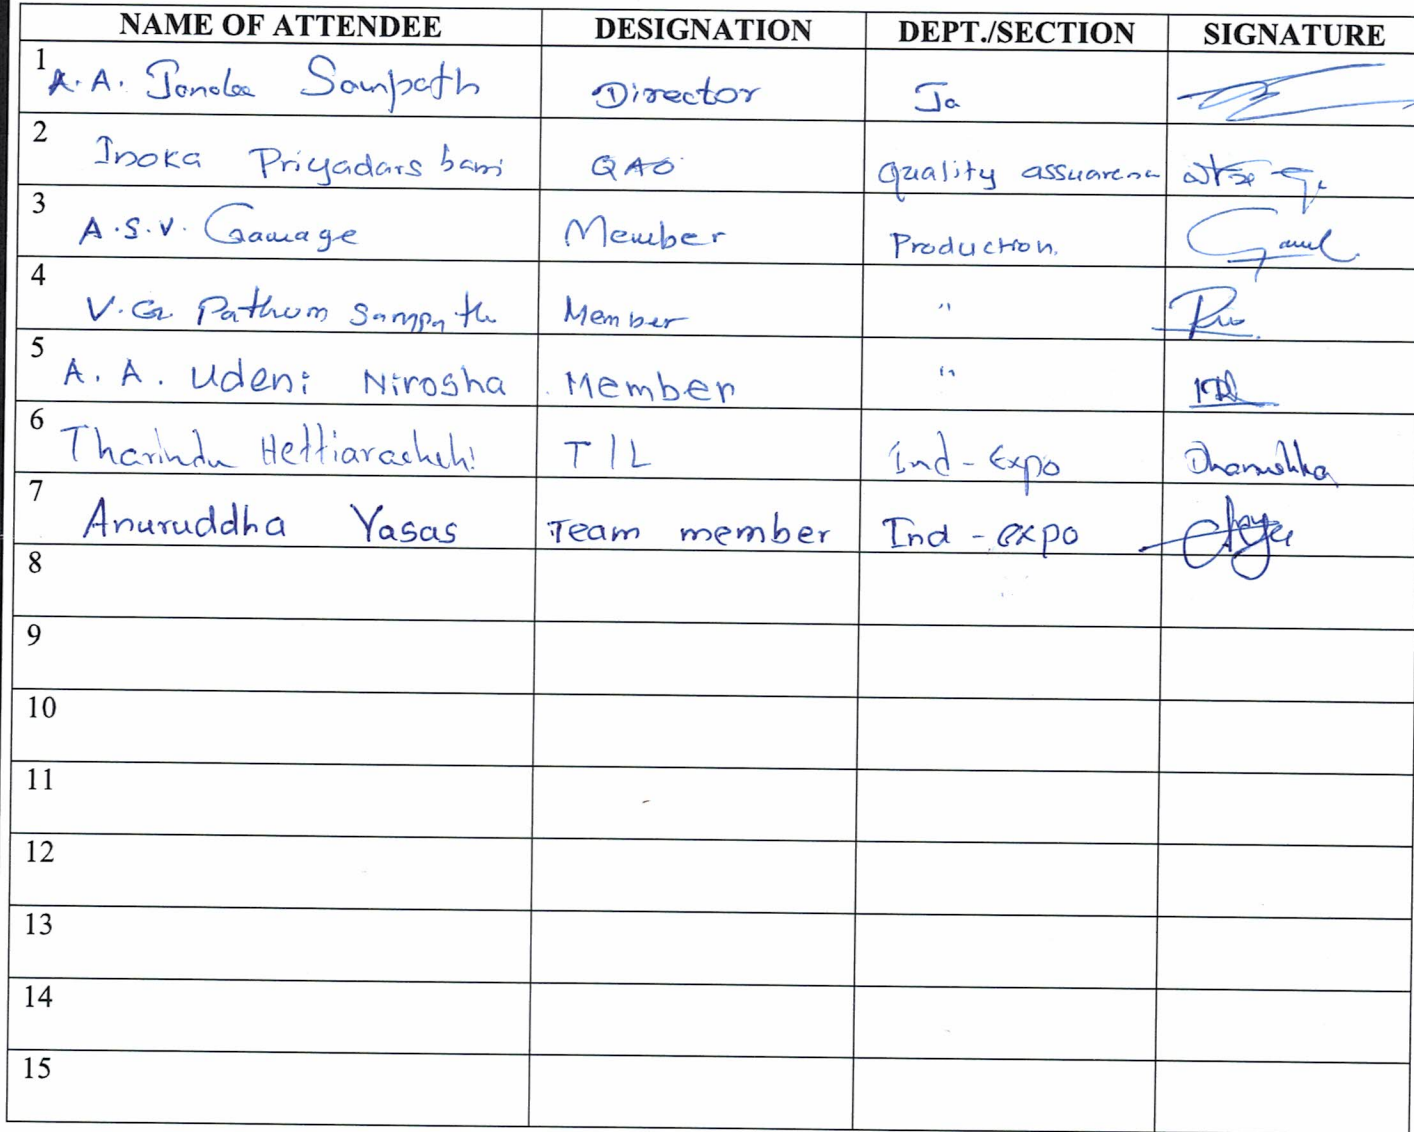 NAME OF ATTENDEE DESIGNATION DEPT./SECTION SIGNATURE
1 A.A. Sampath Director Ja
2 Inoka Priyadarshani QAO Quality assuarena
3 A.S.V. Gamage Member Production.
4 V.G. Pathum Sampath Member "
5 A.A. Udeni Nirosha Member "
6 Tharindu Hettiarachchi T/L Ind-Expo Dhanushka
7 Anuruddha Yasas Team member Ind-expo
8
9
10
11
12
13
14
15